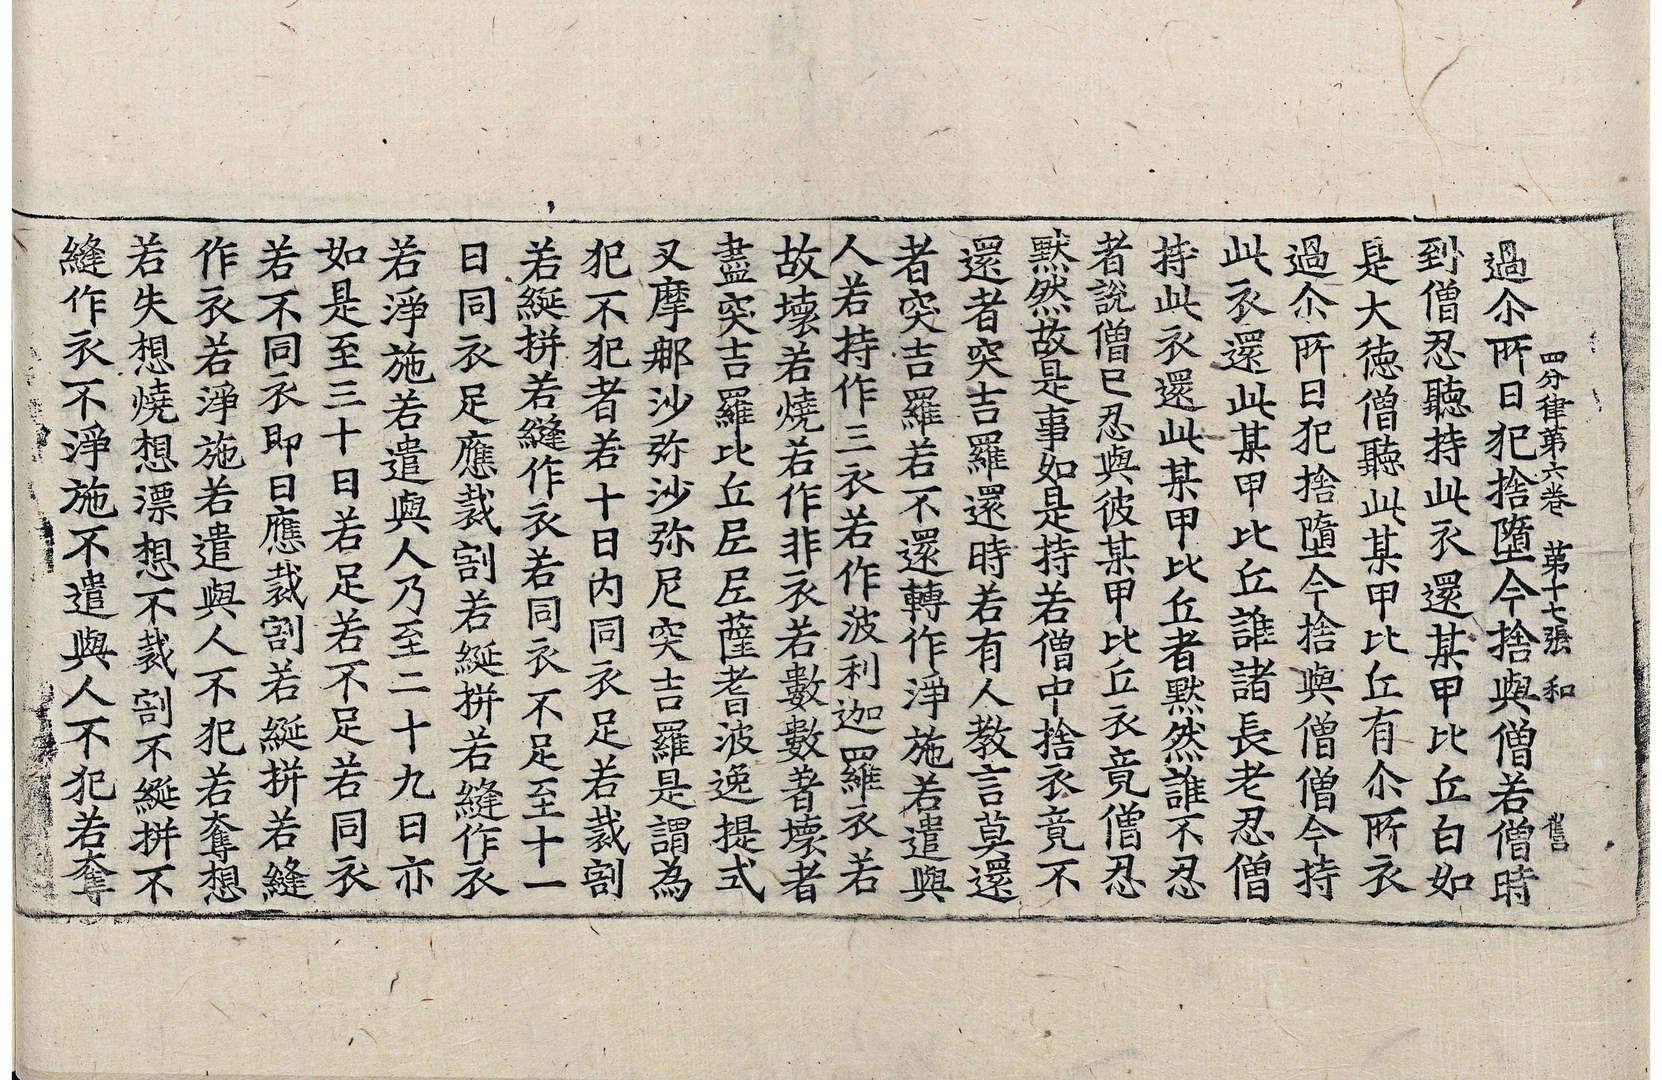 四分律第六卷 第十七張 和 舊
過尒所日犯捨墮今捨與僧若僧時
到僧忍聽持此衣還某甲比丘白如
是大徳僧聽此某甲比丘有尒所衣
過尒所日犯捨墮今捨與僧僧今持
此衣還此某甲比丘誰諸長老忍僧
持此衣還此某甲比丘者默然誰不忍
者說僧已忍與彼某甲比丘衣竟僧忍
默然故是事如是持若僧中捨衣竟不
還者突吉羅還時若有人教言莫還
者突吉羅若不還轉作淨施若遣與
人若持作三衣若作波利迦羅衣若
故壞若燒若作非衣若數數著壞者
盡突吉羅比丘尼尼薩耆波逸提式
叉摩那沙弥沙弥尼突吉羅是謂為
犯不犯者若十日內同衣足若裁割
若綖拼若縫作衣若同衣不足至十一
日同衣足應裁割若綖拼若縫作衣
若淨施若遣與人乃至二十九日亦
如是至三十日若足若不足若同衣
若不同衣即日應裁割若綖拼若縫
作衣若淨施若遣與人不犯若奪想
若失想燒想漂想不裁割不綖拼不
縫作衣不淨施不遣與人不犯若奪